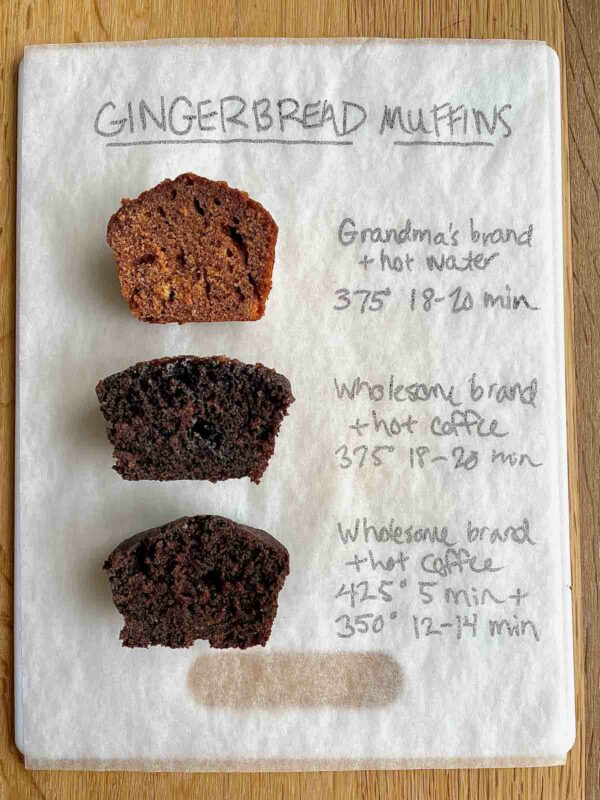 GINGERBREAD MUFFINS
Grandma's brand
+ hot water
375° 18-20 min
Wholesome brand
+ hot coffee
375° 18-20 min
Wholesome brand
+ hot coffee
425° 5 min +
350° 12-14 min